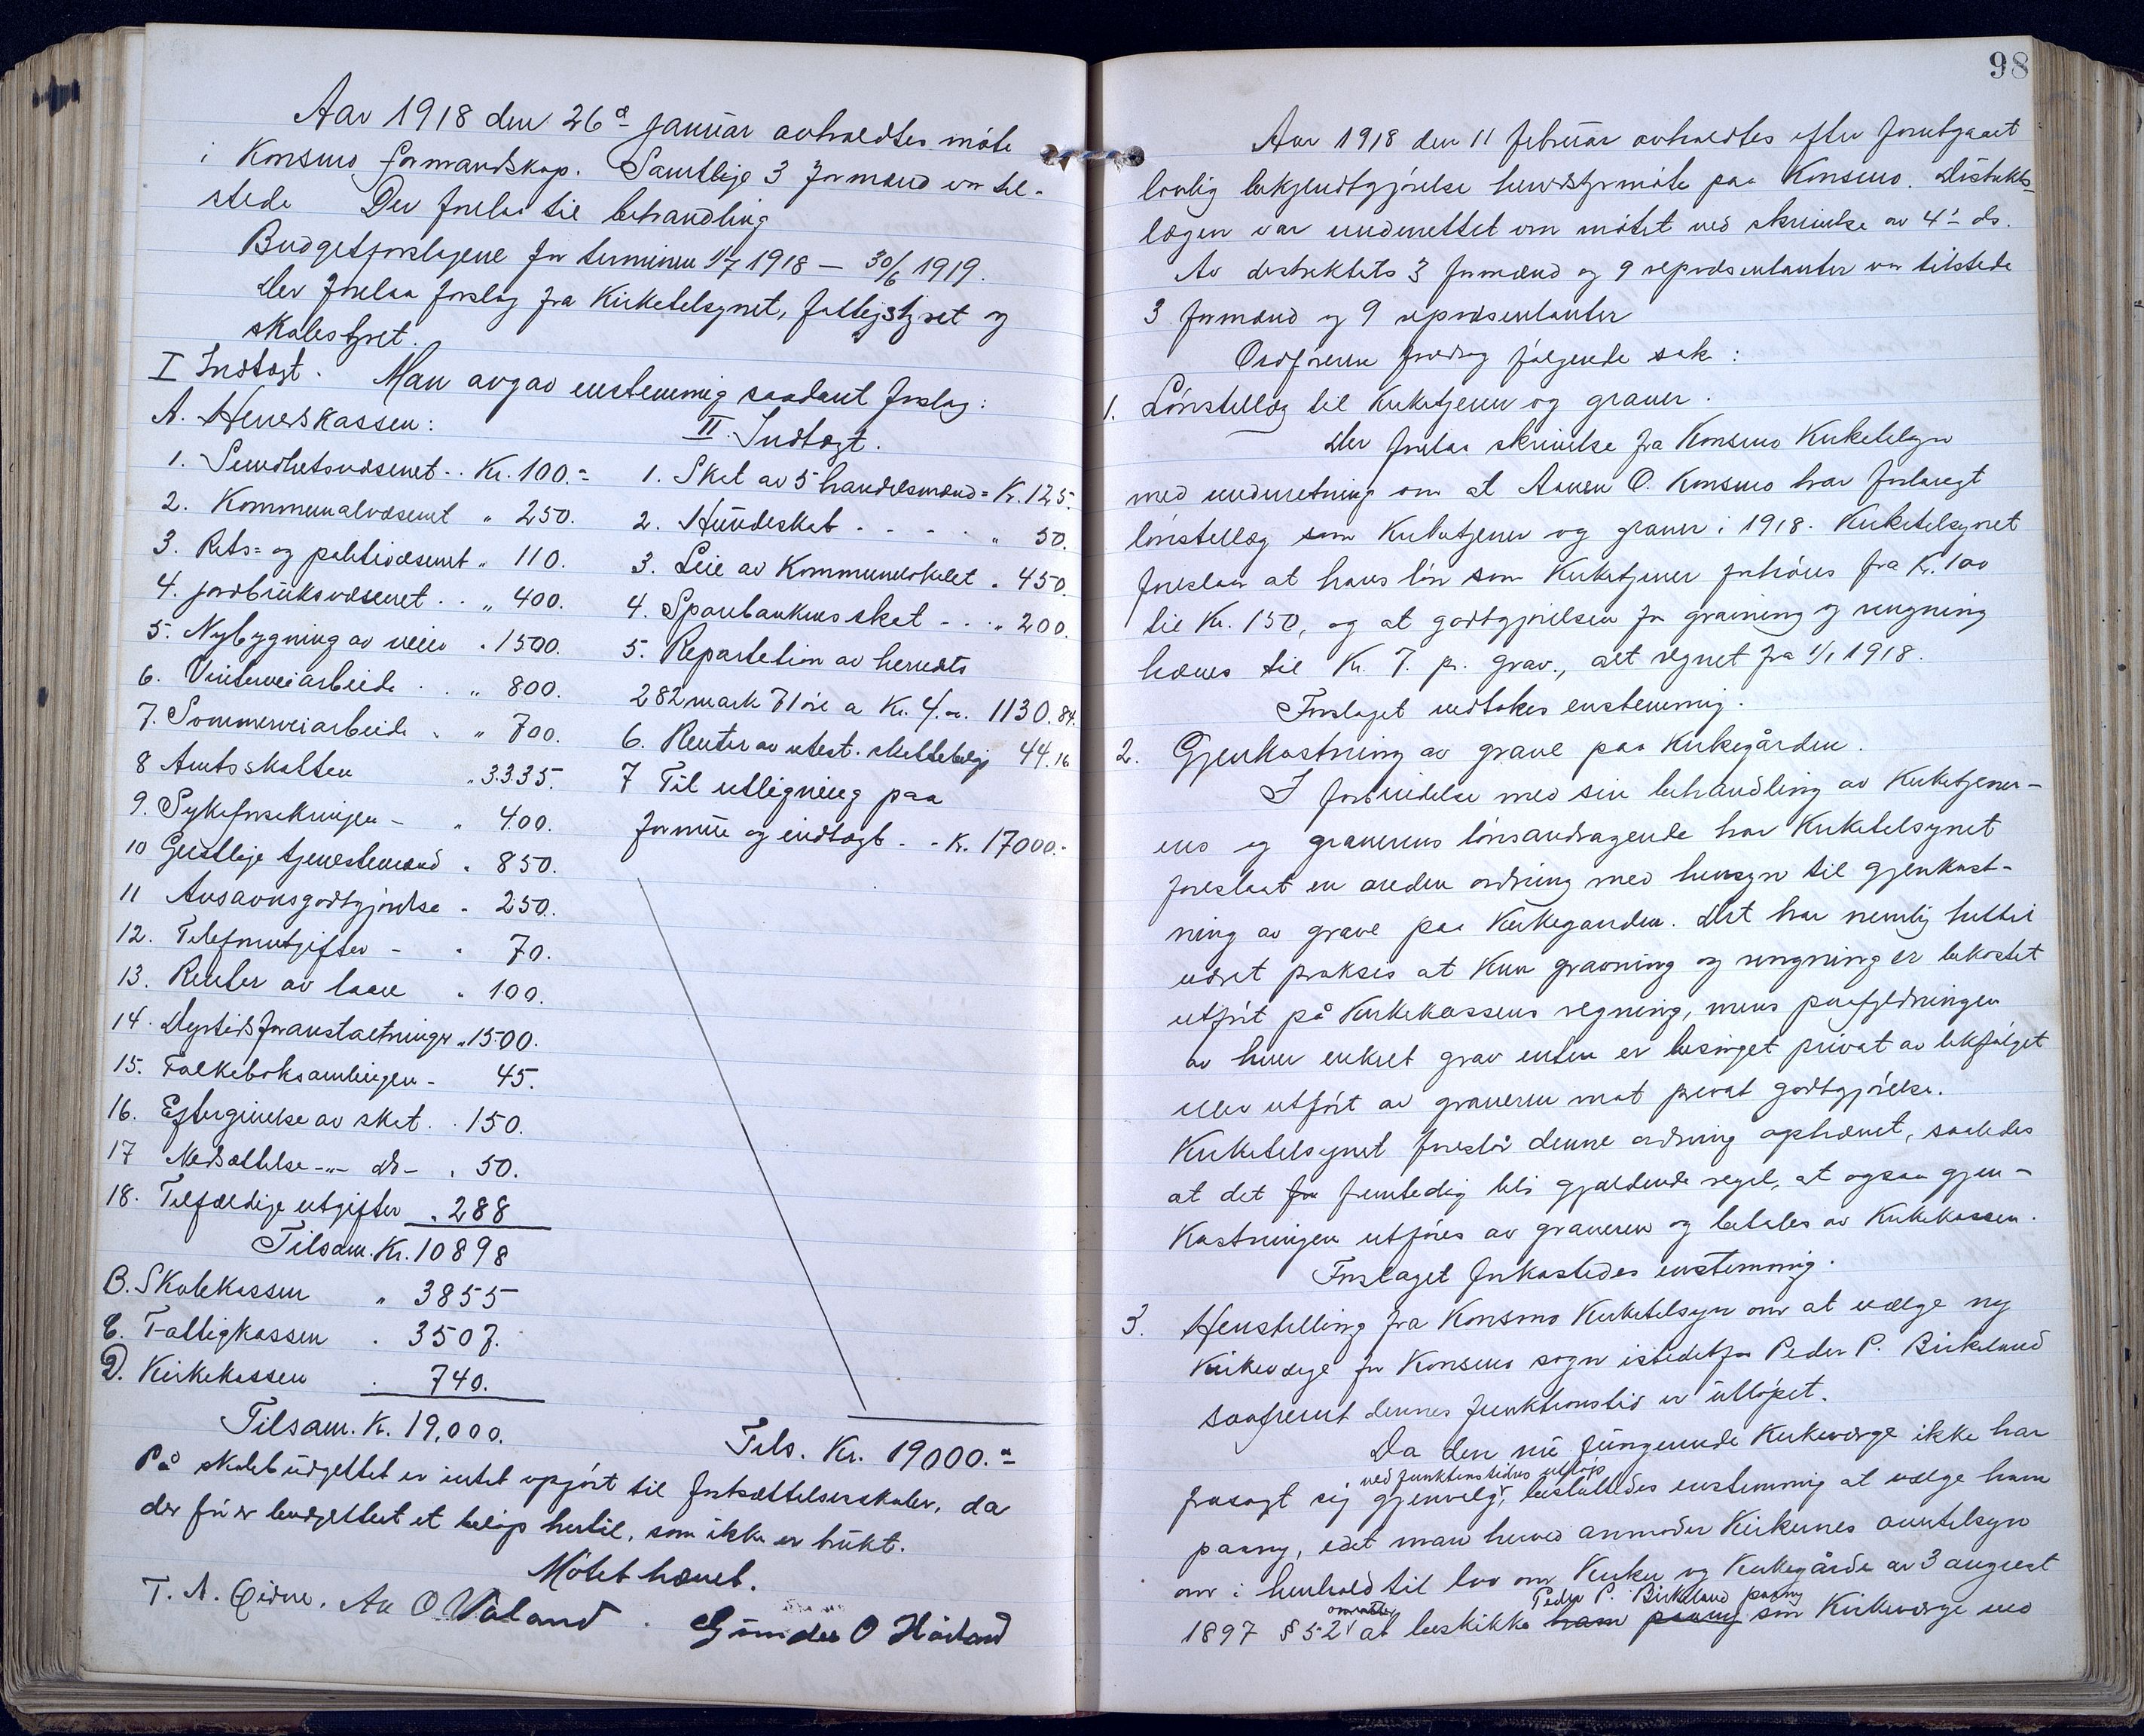 Aar 1918 den 26de januar avholdtes möte
i Konsmo formandskap. Samtlige 3 formænd var til-
stede Der forelaa til behandling
Budgetforslagene for terminen 1/7 1918 — 30/6 1919.
Der forelaa forslag fra Kirketilsynet, fattigstyret og
skolestyret.
Man avgav enstemmig saadant forslag:
I Indtægt.
A. Herredskassen:
1. Sundhetsvæsenet .. Kr. 100.=
2. Kommunalvæsenet " 250.
3. Rets= og politivæsenet " 110.
4. jordbruksvæsenet .. " 400.
5. Nybygning av veier " 1500.
6. Vinterveiarbeide .. " 800.
7. Sommerveiarbeide . " 700.
8 Amtsskatten " 3335.
9. Sykeforsikringen - " 400.
10 Geistlige tjenestemænd " 850.
11 Ansavnsgodtgjörelse . 250.
12. Telefonutgifter - " 70.
13. Renter av laan " 100.
14. Dyrtidsforanstaltninger " 1500.
15. Folkeboksamlingen - 45.
16. Eftergivelse av skat . . 150.
17 Nedsættelse -"- do - . 50.
18. Tilfældige utgifter " 288
Tilsam. Kr. 10898
B. Skolekassen " 3855
C. Fattigkassen . 3507.
D. Kirkekassen . 740.
Tilsam. Kr. 19,000.
II. Indtægt.
1. Skat av 5 handelsmænd = Kr. 125.
2. Hundeskat - - - " 50.
3. Leie av Kommunelokalet " 450.
4. Sparebankens skat - . . " 200.
5. Repartition av herredets
282 mark 71 öre a Kr. 4.00. 1130.84.
6. Renter av utest. skattebelöp 44.16
7 Til utligning paa
formue og indtægt . - Kr. 17000.-
Tils. Kr. 19000.=
På skolebudgettet er intet opfört til fortsættelsesskoler, da
der för er budgettert et belöp hertil, som ikke er brukt.
Mötet hævet.
T. A. Eidne. An O Valand . Gunder O Håland
98
Aar 1918 den 11 februar avholdtes efter forutgaaet
lovlig bekjendtgjörelse herredstyrmöte paa Konsmo. Distrikts-
lægen var underrettet om mötet ved skrivelse av 4' ds.
Av distriktets 3 formænd og 9 repræsentanter var tilstede
3 formænd og 9 repræsentanter
Ordföreren fredrog fölgende sak :
1. Lönstillæg til kirketjener og graver.
Der forelaa skrivelse fra Konsmo Kirketilsyn
med underretning om at Aanen O. Konsmo har forlangt
lönstillæg som Kirketjener og graver i 1918. Kirketilsynet
foreslaar at hans lön som Kirketjener forhöies fra Kr. 100
til Kr. 150, og at godtgjörelsen for gravning og ringning
hæves til Kr. 7. pr. grav., alt regnet fra 1/1 1918.
Forslaget vedtokes enstemmig.
2. Gjenkastning av grave paa kirkegården.
I forbindelse med sin behandling av Kirketjener-
ens og graverens lönsandragende har Kirketilsynet
foreslaat en anden ordning med hensyn til gjenkast-
ning av grave paa Kirkegaarden. Det har nemlig hittil
været praksis at kun gravning og ringning er bekostet
utfört på Kirkekassens regning, mens paafyldningen
av hver enkelt grav enten er besörget privat av likfölget
eller utfört av graveren mot privat godtgjörelse.
Kirketilsynet foreslår denne ordning ophævet, saaledes
at det for fremtidig bli gjældende regel, at ogsaa gjen-
kastningen utföres av graveren og betales av Kirkekassen.
Forslaget forkastedes enstemmig.
3. Henstilling fra Konsmo Kirketilsyn om at vælge ny
Kirkeværge for Konsmo sogn istedetfor Peder P. Birkeland
saafremt dennes funktionstid er utlöpet.
Da den nu fungerende Kirkeværge ikke har
ved funktionstidens utlöp
frasagt sig gjenvalg, besluttedes enstemmig at vælge ham
paany, idet man herved anmoder Kirkenes overtilsyn
om i henhold til lov om Kirker og Kirkegårde av 3 august
Peder P. Birkeland paany
1897 § 52 at beskikke ham paany som Kirkeværge ved